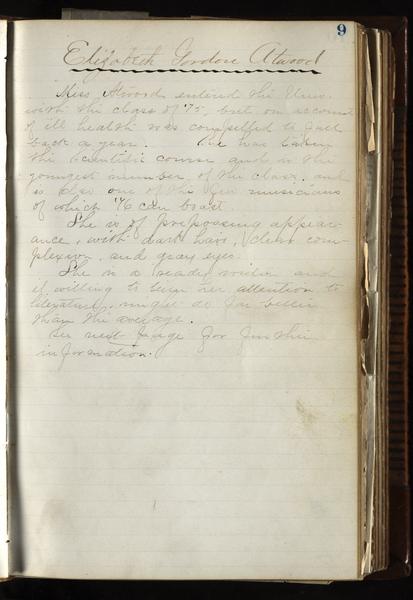 9
Elizabeth Gordon Atwood
Miss Atwood entered the Univ.
with the class of '75, but on account
of ill health was compelled to fall
back a year. She has taken
the Scientific course and is the
youngest member of the class, and
is also one of the few musicians
of which '76 can boast.
She is of prepossing appear-
ance, with dark hair, clear com-
plexion and gray eyes.
She is a ready writer and
if willing to turn her attention to
literature, might do far better
than the average.
See next page for further
information.